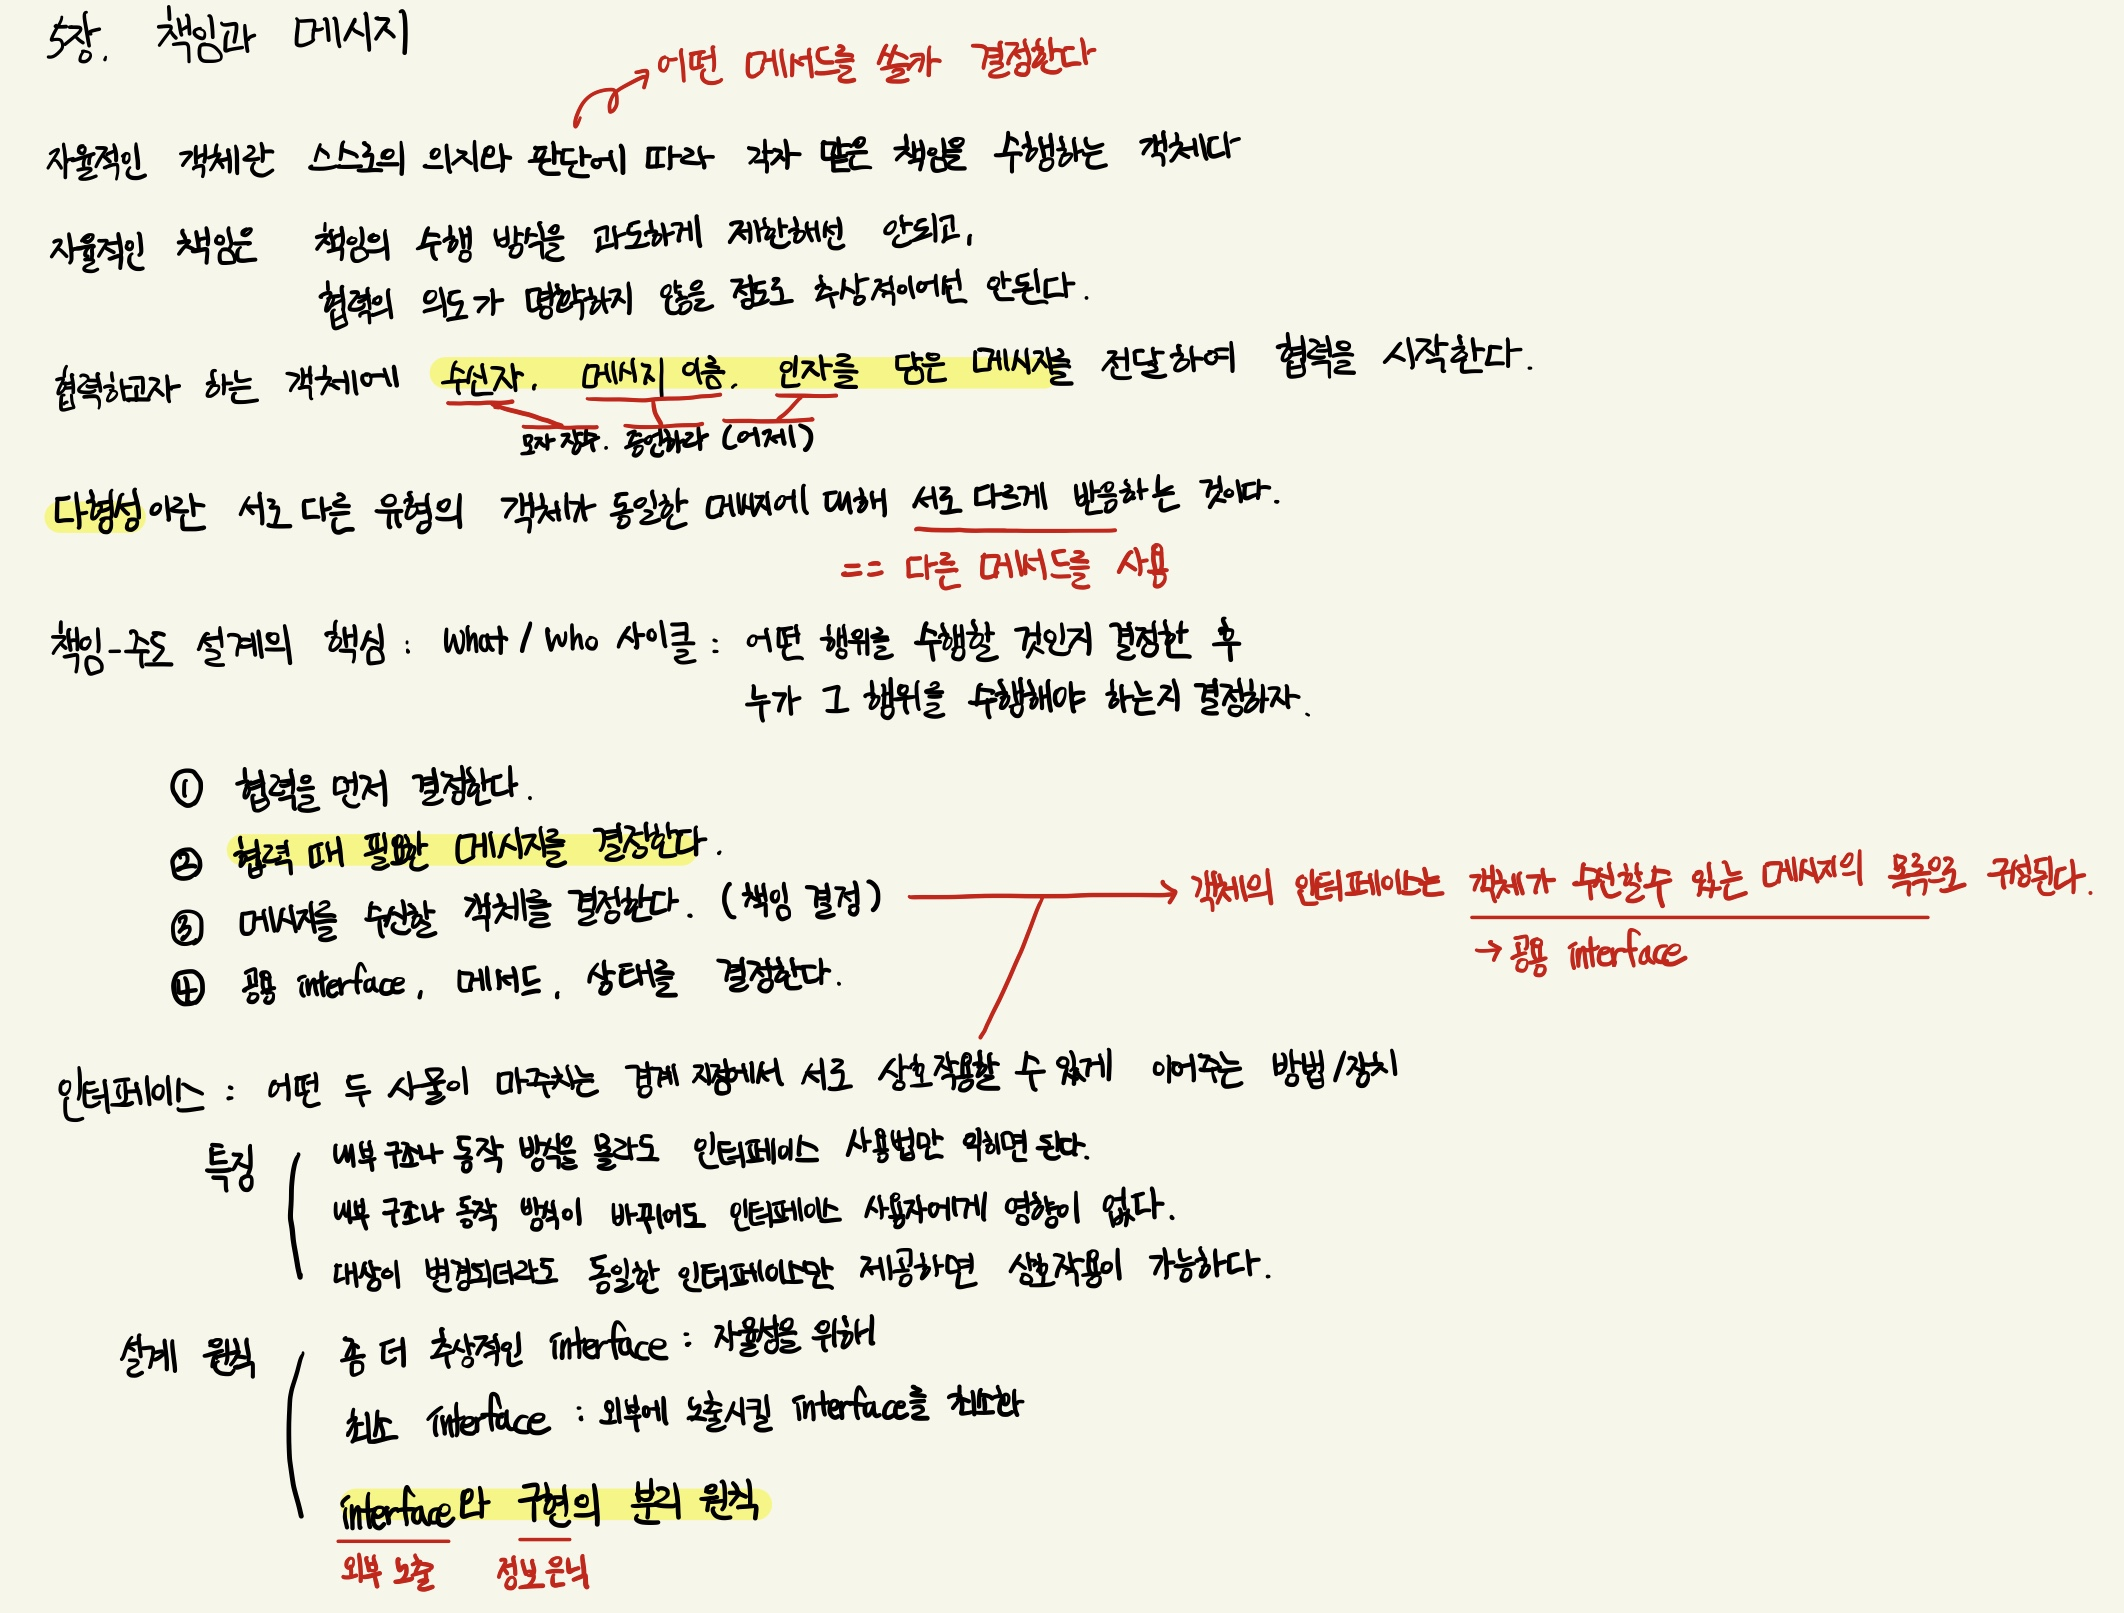 5장. 책임과 메시지
어떤 메서드를 쓸까 결정한다
자율적인 객체란 스스로의 의지와 판단에 따라 각자 맡은 책임을 수행하는 객체다
자율적인 책임은 책임의 수행 방식을 과도하게 제한해선 안되고,
협력의 의도가 명확하지 않을 정도로 추상적이어선 안된다.
협력하고자 하는 객체에 수신자, 메시지 이름, 인자를 담은 메시지를 전달하여 협력을 시작한다.
모자 장수. 증언하라 (어제)
다형성이란 서로 다른 유형의 객체가 동일한 메시지에 대해 서로 다르게 반응하는 것이다.
== 다른 메서드를 사용
책임-주도 설계의 핵심 : What / Who 사이클 : 어떤 행위를 수행할 것인지 결정한 후
누가 그 행위를 수행해야 하는지 결정하자.
① 협력을 먼저 결정한다.
② 협력 때 필요한 메시지를 결정한다.
③ 메시지를 수신할 객체를 결정한다. (책임 결정) → 객체의 인터페이스는 객체가 수신할 수 있는 메시지의 목록으로 구성된다.
→ 공용 interface
④ 공용 interface, 메서드, 상태를 결정한다.
인터페이스 : 어떤 두 사물이 마주치는 경계 지점에서 서로 상호작용할 수 있게 이어주는 방법/장치
특징 내부 구조나 동작 방식을 몰라도 인터페이스 사용법만 익히면 된다.
내부 구조나 동작 방식이 바뀌어도 인터페이스 사용자에게 영향이 없다.
대상이 변경되더라도 동일한 인터페이스만 제공하면 상호작용이 가능하다.
설계 원칙 좀 더 추상적인 interface : 자율성을 위해
최소 interface : 외부에 노출시킬 interface를 최소화
interface와 구현의 분리 원칙
외부 노출 정보 은닉